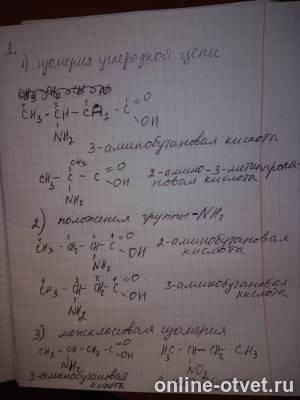 1.
1) изомерия углеродной цепи
CH₃ - CH - CH₂ - C = O
NH₂ OH
3-аминобутановая кислота
CH₃
CH₃ - C - C = O
NH₂ OH
2-амино-3-метилпропа-
новая кислота
2) положения группы -NH₂
CH₃ - CH₂ - CH - C = O
NH₂ OH
2-аминобутановая
кислота
CH₃ - CH - CH₂ - C = O
NH₂ OH
3-аминобутановая
кислота
3) межклассовая изомерия
CH₃ - CH - CH₂ - C = O
NH₂ OH
3-аминобутановая
кислота
H₃C - CH - CH₂ - CH₃
NO₂
online-otvet.ru